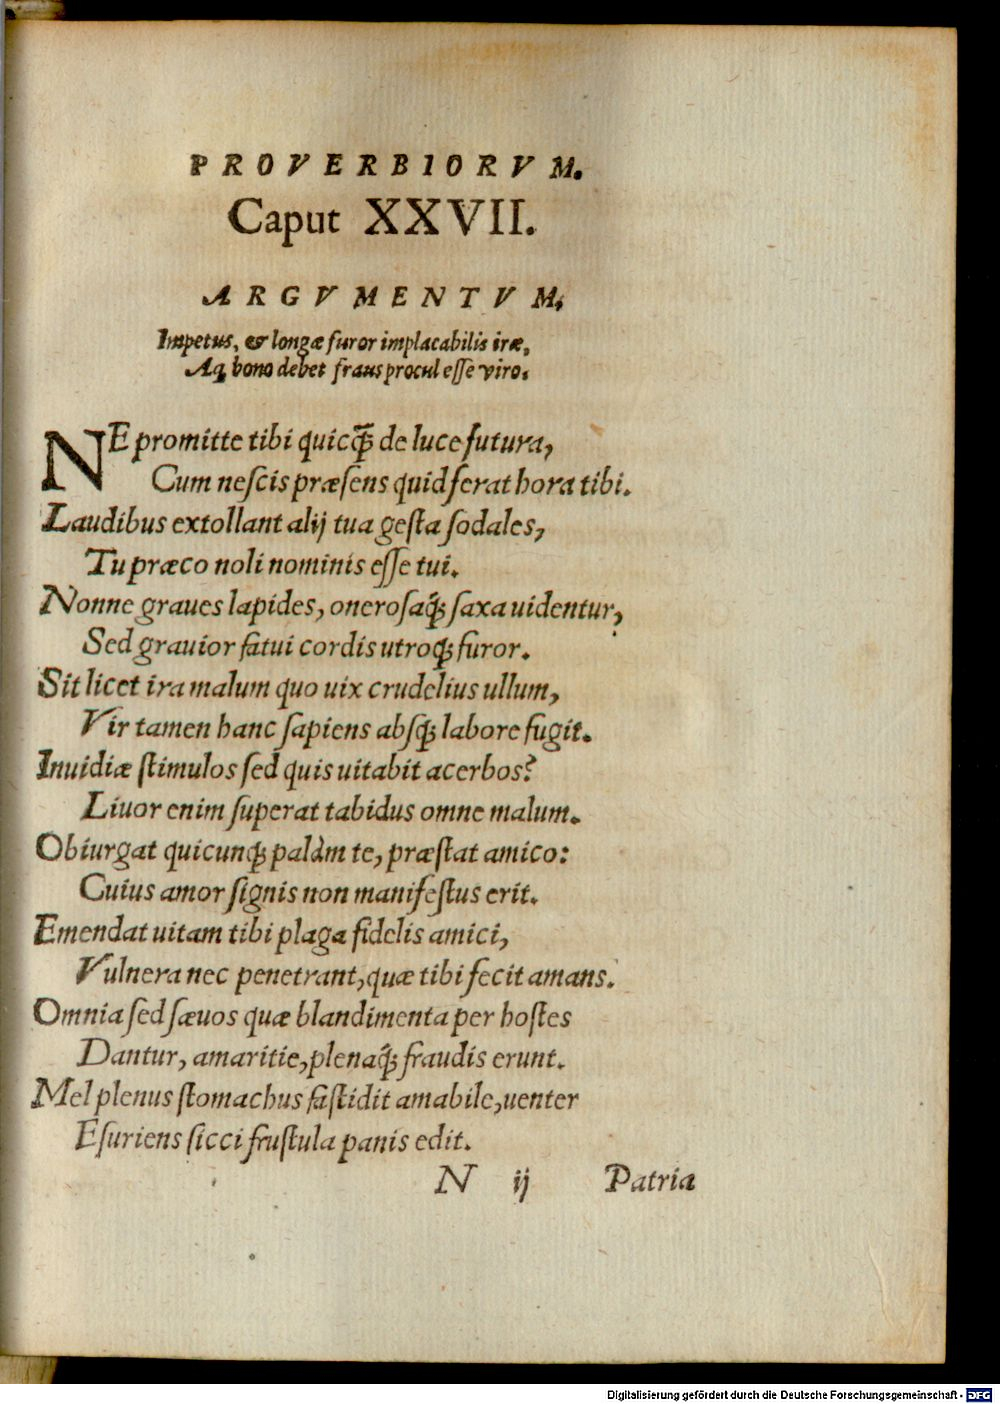 PROVERBIORVM.
Caput XXVII.
ARGVMENTVM,
Impetus, & longæ furor implacabilis iræ,
Aq; bono debet fraus procul esse viro.
NE promitte tibi quicq̃; de luce futura,
Cum nescis præsens quid ferat hora tibi.
Laudibus extollant alij tua gesta sodales,
Tu præco noli nominis esse tui.
Nonne graues lapides, onerosaq́; saxa uidentur,
Sed grauior fatui cordis utroq; furor.
Sit licet ira malum quo uix crudelius ullum,
Vir tamen hanc sapiens absq; labore fugit.
Inuidiæ stimulos sed quis uitabit acerbos?
Liuor enim superat tabidus omne malum.
Obiurgat quicunq; palàm te, præstat amico:
Cuius amor signis non manifestus erit.
Emendat uitam tibi plaga fidelis amici,
Vulnera nec penetrant, quæ tibi fecit amans.
Omnia sed sæuos quæ blandimenta per hostes
Dantur, amaritie, plenaq́; fraudis erunt.
Mel plenus stomachus fastidit amabile, uenter
Esuriens sicci frustula panis edit.
N ij Patria
Digitalisierung gefördert durch die Deutsche Forschungsgemeinschaft - DFG